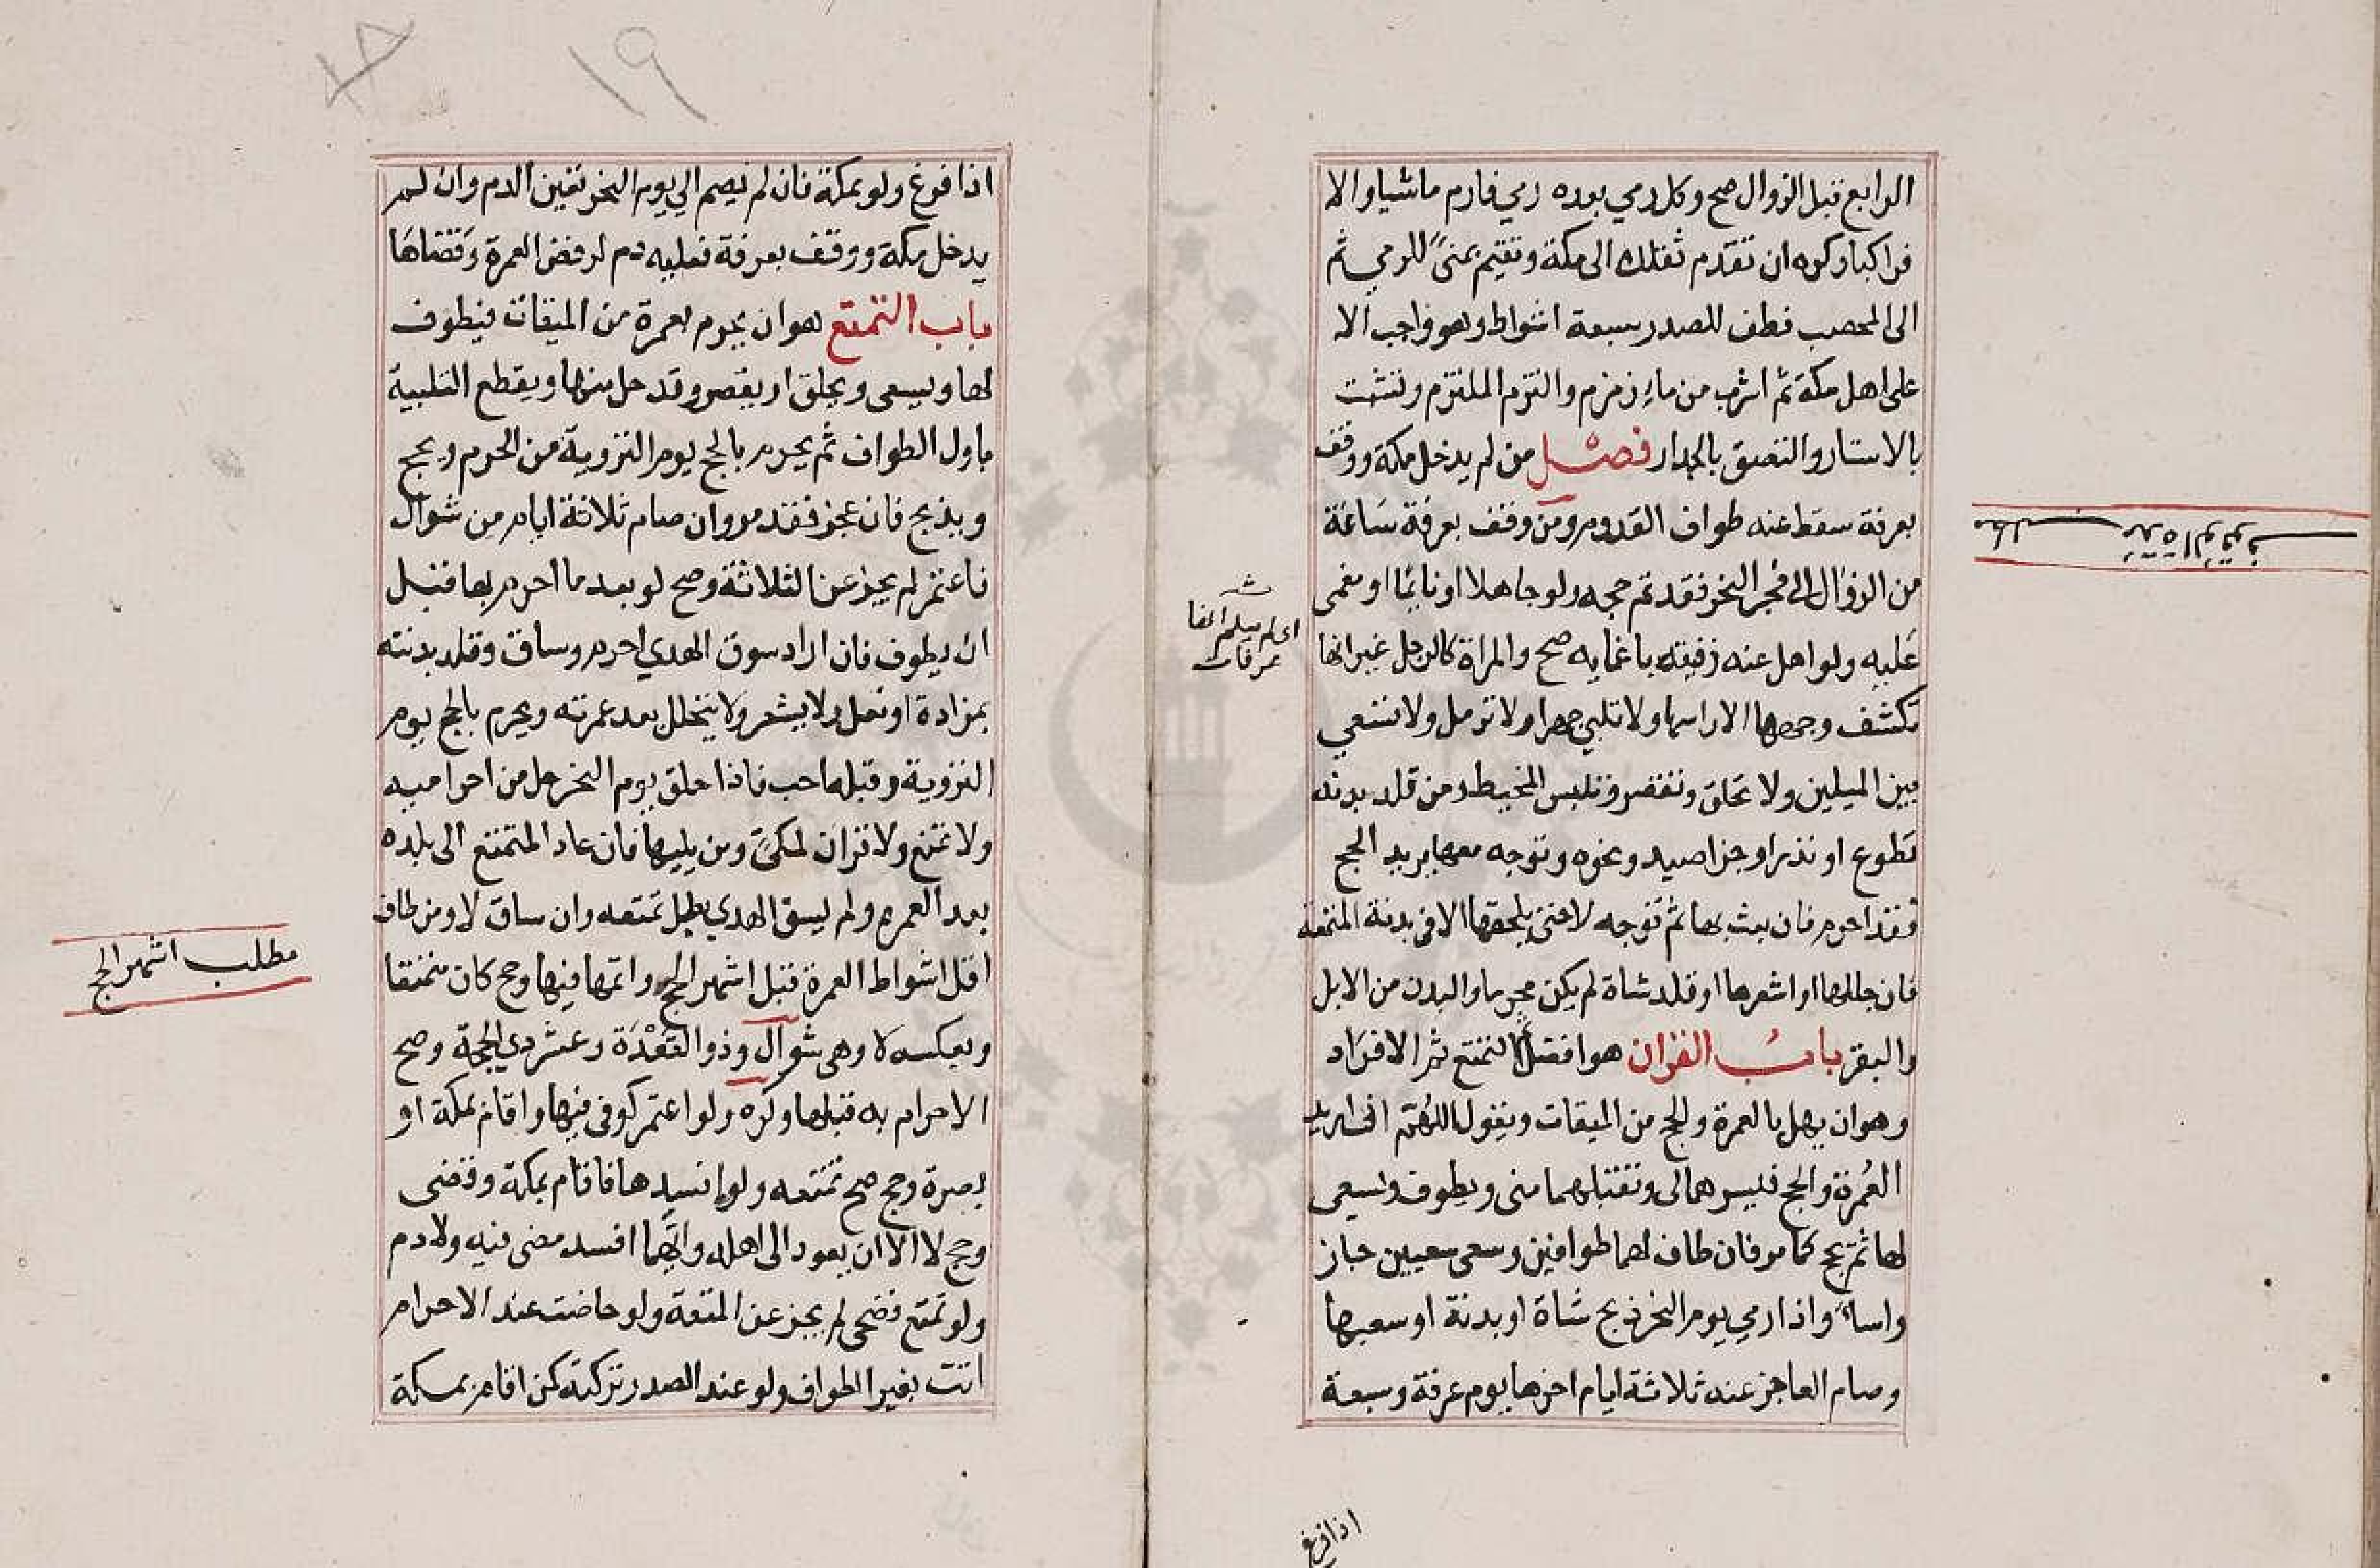 الرابع قبل الزوال صح وكل رمي بعده رمي فارم ماشيا والا
فراكبا وكره ان تقدم ثقلك الى مكة وتقيم بمنىً للرمي ثم
الى المحصب فطف للصدر سبعة اشواط وهو واجب الا
على اهل مكة ثم اشرب من ماء زمزم والتزم الملتزم وتشبث
بالاستار والتصق بالجدار فصل من لم يدخل مكة ووقف
بعرفة سقط عنه طواف القدوم ومن وقف بعرفة ساعة
من الزوال الى فجر النحر فقد تم حجه ولو جاهلا او نايما او مغمى
عليه ولو اهل عنه رفيقه باغمايه صح والمراة كالرجل غير انها
تكشف وجهها لا راسها ولا تلبي جهرا ولا ترمل ولا تسعي
بين الميلين ولا تحلق وتقصر وتلبس المخيط ومن قلد بدنة
تطوع او نذر او جزا صيد ونحوه وتوجه معها يريد الحج
فقد احرم فان بعث بها ثم توجه لا حتى يلحقها الا في بدنة المتعة
فان جللها او اشعرها او قلد شاة لم يكن محرما والبدن من الابل
والبقر باب القران هو افضل ثم التمتع ثم الافراد
وهو ان يهل بالعمرة والحج من الميقات ويقول اللهم اني اريد
العمرة والحج فيسرهما لي وتقبلهما مني ويطوف ويسعى
لها ثم يحج كما مر فان طاف لهما طوافين وسعى سعيين جاز
واساء واذا رمي يوم النحر ذبح شاة او بدنة او سبعها
وصام العاجز عنه ثلاثة ايام اخرها يوم عرفة وسبعة
اعلم
عرفات
اذا فرغ
اذا فرغ ولو بمكة فان لم يصم الي يوم النحر تعين الدم وان لم
يدخل مكة ووقف بعرفة فعليه دم لرفض العمرة وقضاها
باب التمتع هو ان يحرم بعمرة من الميقات فيطوف
لها ويسعى ويحلق او يقصر وقد حل منها ويقطع التلبية
باول الطواف ثم يحرم بالحج يوم التروية من الحرم ويحج
ويذبح فان عجز فقد مر وان صام ثلاثة ايام من شوال
فاعتمر لم يجز عن الثلاثة وصح لو بعد ما احرم بها قبل
ان يطوف فان اراد سوق الهدي احرم وساق وقلد بدنته
بمزادة او نعل ولا يشعر ولا يتحلل بعد عمرته ويحرم بالحج يوم
التروية وقبله احب فاذا حلق يوم النحر حل من احراميه
ولا تمتع ولا قران لمكي ومن يليها فان عاد المتمتع الى بلده
بعد العمرة ولم يسق الهدي بطل تمتعه وان ساق لا ومن طاف
اقل اشواط العمرة قبل اشهر الحج واتمها فيها وحج كان متمتعا
وبعكسه لا وهى شوال وذو القعدة وعشر ذي الحجة وصح
الاحرام به قبلها وكره ولو اعتمر كوفى فيها واقام بمكة او
بصرة وحج صح تمتعه ولو افسدها فاقام بمكة وقضى
وحج لا الا ان يعود الى اهله وايهما افسد مضى فيه ولا دم
ولو تمتع فضحى لم يجز عن المتعة ولو حاضت عند الاحرام
اتت بغير الطواف ولو عند الصدر تركته كمن اقام بمكة
مطلب اشهر الحج
١٩